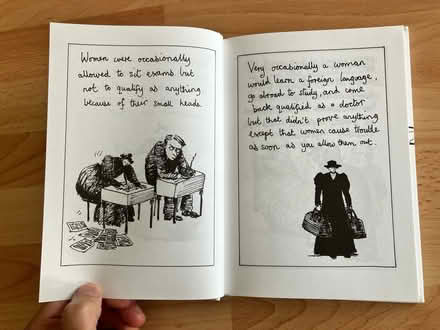 Women were occasionally
allowed to sit exams but
not to qualify as anything
because of their small heads.
Very occasionally a woman
would learn a foreign language,
go abroad to study, and come
back qualified as a doctor
but that didn't prove anything
except that women cause trouble
as soon as you allow them out.